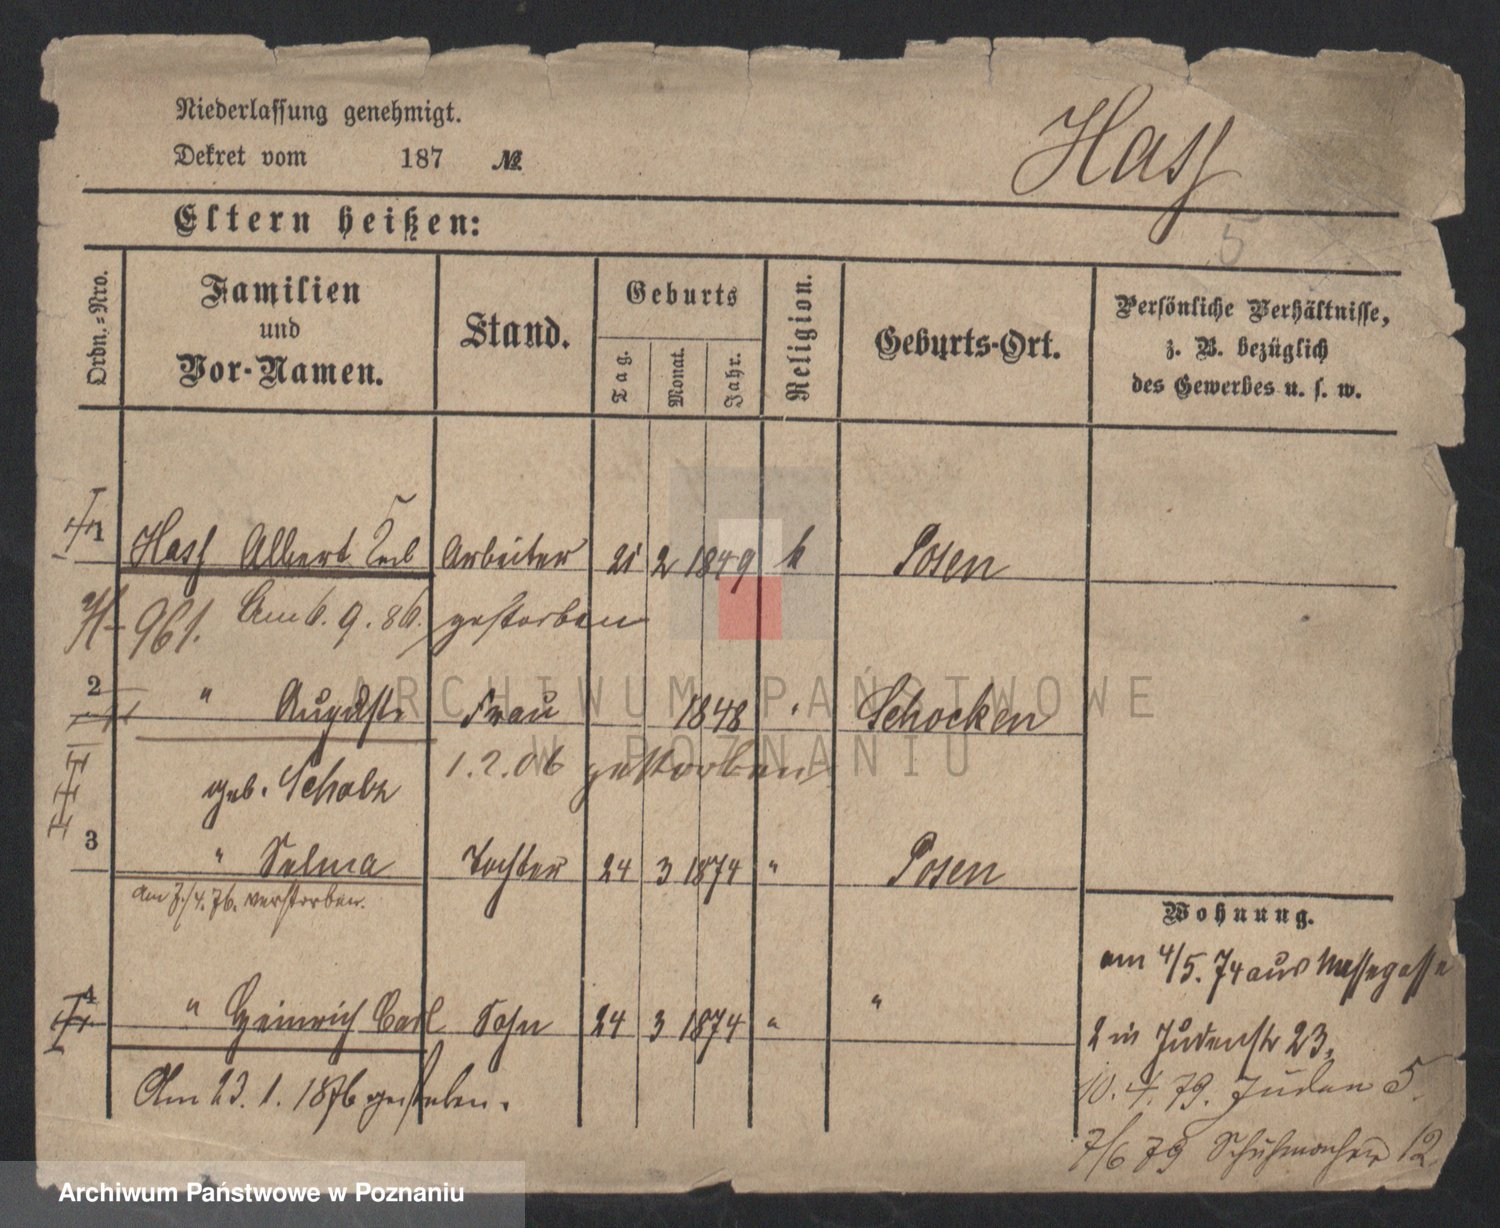 Niederlassung genehmigt.
Dekret vom 187 №.
Hass
5
Eltern heißen:
Ordn.-Nro.
Familien
und
Vor-Namen.
Stand.
Geburts
Tag.
Monat.
Jahr.
Religion.
Geburts-Ort.
Persönliche Verhältnisse,
z. B. bezüglich
des Gewerbes u. s. w.
1 Hass Albert Arbeiter 21 2 1849 k Posen
961. Am 6. 9. 86. gestorben
2 " Auguste Frau 1848 " Schocken
geb. Scholz 1.2.06 gestorben
3 " Selma Tochter 24 3 1874 " Posen
am 7./4. 76. verstorben.
4 " Heinrich Carl Sohn 24 3 1874 " "
Am 23. 1. 1876 gestorben.
Wohnung.
am 4/5. 74 aus Messegasse
2 in Judenstr 23.
10. 4. 79. Juden 5.
7/6 79 Schuhmacher 12
ARCHIWUM PAŃSTWOWE
W POZNANIU
Archiwum Państwowe w Poznaniu